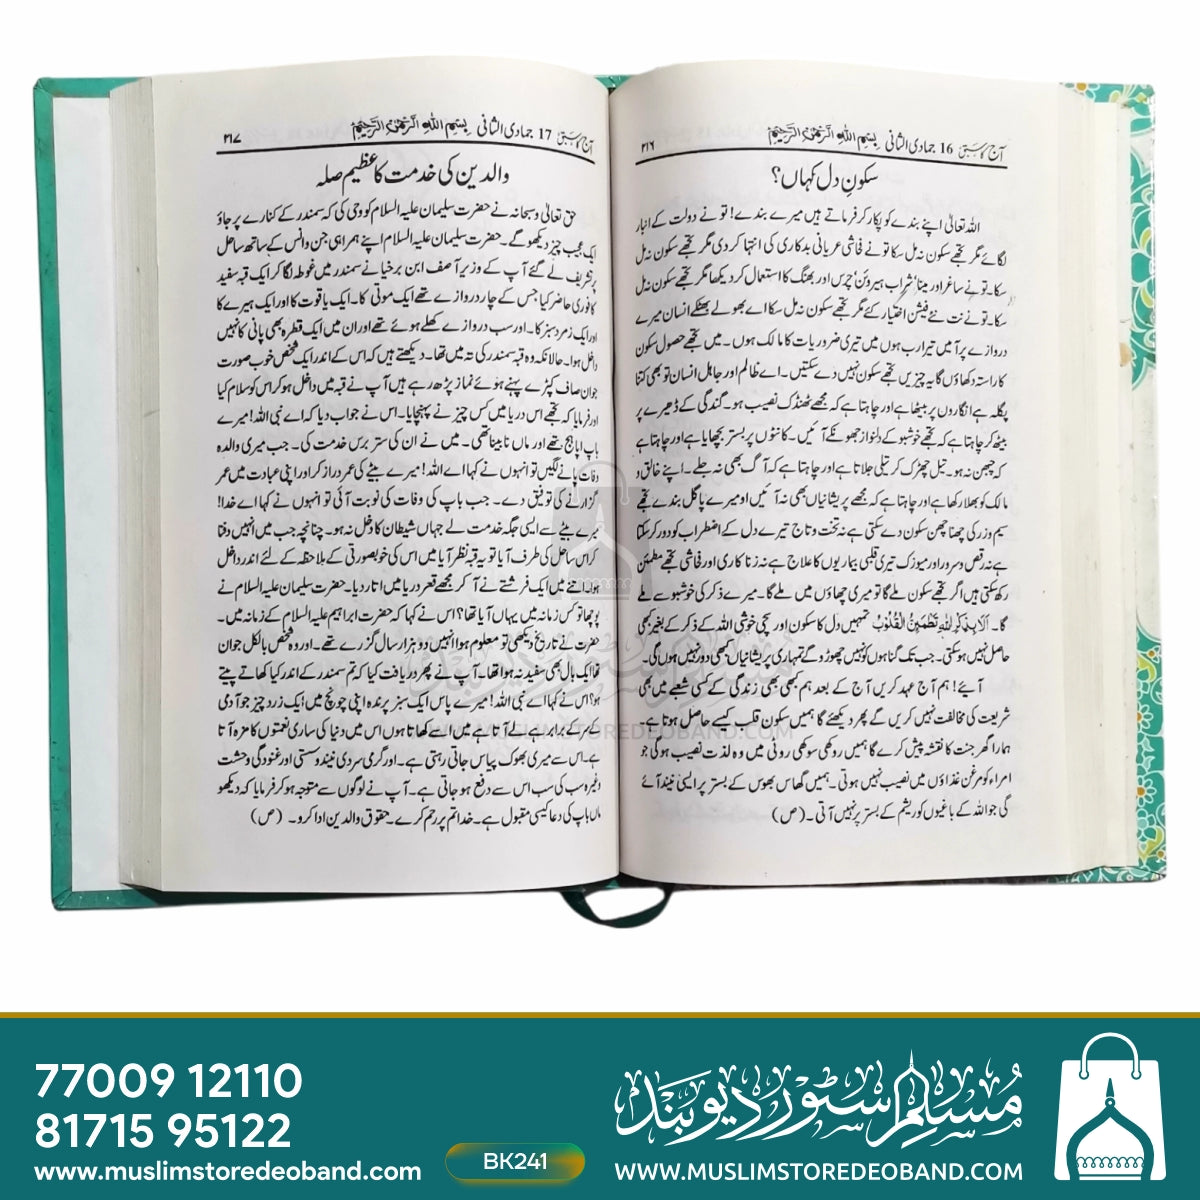 آج کا سبق 16 جمادی الثانی بِسْمِ اللهِ الرَّحْمٰنِ الرَّحِيْمِ ۲۱۶
سکونِ دل کہاں؟
اللہ تعالیٰ اپنے بندے کو پکار کر فرماتے ہیں میرے بندے! تو نے دولت کے انبار
لگائے مگر تجھے سکون نہ مل سکا تو نے فاشی عریانی بدکاری کی انتہا کر دی مگر تجھے سکون نہ مل
سکا۔ تو نے ساغر اور مینا شراب ہیروئن چرس اور بھنگ کا استعمال کر دیکھا مگر تجھے سکون نہ مل
سکا۔ تو نے نت نئے فیشن اختیار کئے مگر تجھے سکون نہ مل سکا اے بھولے بھٹکے انسان میرے
دروازے پر آ میں تیرا رب ہوں میں تیری ضروریات کا مالک ہوں۔ میں تجھے حصول سکون
کا راستہ دکھاؤں گا یہ چیزیں تجھے سکون نہیں دے سکتیں۔ اے ظالم اور جاہل انسان تو بھی کتنا
پگلہ ہے انگاروں پر بیٹھا ہے اور چاہتا ہے کہ مجھے ٹھنڈک نصیب ہو۔ گندگی کے ڈھیرے پر
بیٹھ کر چاہتا ہے کہ تجھے خوشبو کے دلنواز جھونکے آئیں۔ کانٹوں پر بستر بچھایا ہے اور چاہتا ہے
کہ چبھن نہ ہو۔ تیل چھڑک کر تیلی جلاتا ہے اور چاہتا ہے کہ آگ بھی نہ جلے۔ اپنے خالق و
مالک کو بھلا رکھا ہے اور چاہتا ہے کہ مجھے پریشانیاں بھی نہ آئیں او میرے پاگل بندے تجھے
سیم و زر کی چھنا چھن سکون دے سکتی ہے نہ تخت و تاج تیرے دل کے اضطراب کو دور کر سکتا
ہے نہ رقص و سرور اور میوزک تیری قلبی بیماریوں کا علاج ہے نہ زنا کاری اور فاشی تجھے مطمئن
رکھ سکتی ہیں اگر تجھے سکون ملے گا تو میری چھاؤں میں ملے گا۔ میرے ذکر کی خوشبو سے ملے
گا۔ اَلَا بِذِكْرِ اللهِ تَطْمَئِنُّ الْقُلُوْبُ تمہیں دل کا سکون اور سچی خوشی اللہ کے ذکر کے بغیر بھی
حاصل نہیں ہو سکتی۔ جب تک گناہوں کو نہیں چھوڑو گے تمہاری پریشانیاں کبھی دور نہیں ہوں گی۔
آیئے! ہم آج عہد کریں آج کے بعد ہم بھی بھی زندگی کے کسی شعبے میں بھی
شریعت کی مخالفت نہیں کریں گے پھر دیکھئے گا ہمیں سکون قلب کیسے حاصل ہوتا ہے۔
ہمارا گھر جنت کا نقشہ پیش کرے گا ہمیں روکھی سوکھی روٹی میں وہ لذت نصیب ہوگی جو
امراء کو مرغن غذاؤں میں نصیب نہیں ہوتی۔ ہمیں گھاس بھوس کے بستر پر ایسی نیند آئے
گی جو اللہ کے باغیوں کو ریشم کے بستر پر نہیں آتی۔ (ص)
آج کا سبق 17 جمادی الثانی بِسْمِ اللهِ الرَّحْمٰنِ الرَّحِيْمِ ۲۱۷
والدین کی خدمت کا عظیم صلہ
حق تعالیٰ و سبحانہ نے حضرت سلیمان علیہ السلام کو وحی کی کہ سمندر کے کنارے پر جاؤ
ایک عجیب چیز دیکھو گے۔ حضرت سلیمان علیہ السلام اپنے ہمراہی جن و انس کے ساتھ ساحل
پر تشریف لے گئے آپ کے وزیر آصف ابن برخیا نے سمندر میں غوطہ لگا کر ایک قبہ سفید
کا فوری حاضر کیا جس کے چار دروازے تھے ایک موتی کا۔ ایک یاقوت کا اور ایک ہیرے کا
اور ایک زمرد سبز کا۔ اور سب دروازے کھلے ہوئے تھے اور ان میں ایک قطرہ بھی پانی کا نہیں
داخل ہوا۔ حالانکہ وہ قبہ سمندر کی تہ میں تھا۔ دیکھتے ہیں کہ اس کے اندر ایک شخص خوب صورت
جوان صاف کپڑے پہنے ہوئے نماز پڑھ رہے ہیں آپ نے قبہ میں داخل ہو کر اس کو سلام کیا
اور فرمایا کہ تجھے اس دریا میں کس چیز نے پہنچایا۔ اس نے جواب دیا کہ اے نبی اللہ! میرے
باپ اپاہج تھے اور ماں نابینا تھی۔ میں نے ان کی ستر برس خدمت کی۔ جب میری والدہ
وفات پانے لگیں تو انہوں نے کہا اے اللہ! میرے بیٹے کی عمر دراز کر اور اپنی عبادت میں عمر
گزارنے کی توفیق دے۔ جب باپ کی وفات کی نوبت آئی تو انہوں نے کہا اے خدا!
میرے بیٹے سے ایسی جگہ خدمت لے جہاں شیطان کا دخل نہ ہو۔ چنانچہ جب میں انہیں دفنا
کر اس ساحل کی طرف آیا تو یہ قبہ نظر آیا میں اس کی خوبصورتی کے ملاحظہ کے لئے اندر داخل
ہوا۔ اتنے میں ایک فرشتے نے آ کر مجھے قعر دریا میں اتار دیا۔ حضرت سلیمان علیہ السلام نے
پوچھا تو کس زمانہ میں یہاں آیا تھا؟ اس نے کہا کہ حضرت ابراہیم علیہ السلام کے زمانہ میں۔
حضرت نے تاریخ دیکھی تو معلوم ہوا انہیں دو ہزار سال گزرے تھے۔ اور وہ شخص بالکل جوان
تھا ایک بال بھی سفید نہ ہوا تھا۔ آپ نے پھر دریافت کیا کہ تم سمندر کے اندر کیا کھاتے پیتے
ہو؟ اس نے کہا اے نبی اللہ! میرے پاس ایک سبز پرندہ اپنی چونچ میں ایک زرد چیز جو آدمی
کے سر کے برابر ہے لے آتا ہے میں اسے کھاتا ہوں اس میں دنیا کی ساری نعمتوں کا مزہ آتا
ہے۔ اس سے میری بھوک پیاس جاتی رہتی ہے۔ اور گرمی سردی نیند و سستی اور غنودگی وحشت
وغیرہ سب کی سب اس سے دفع ہو جاتی ہے۔ آپ نے لوگوں سے متوجہ ہو کر فرمایا کہ دیکھو
ماں باپ کی دعا کیسی مقبول ہے۔ خدا تم پر رحم کرے۔ حقوق والدین ادا کرو۔ (ص)
WWW.MUSLIMSTOREDEOBAND.COM
77009 12110
81715 95122
www.muslimstoredeoband.com
BK241
مسلم سٹور دیوبند
WWW.MUSLIMSTOREDEOBAND.COM